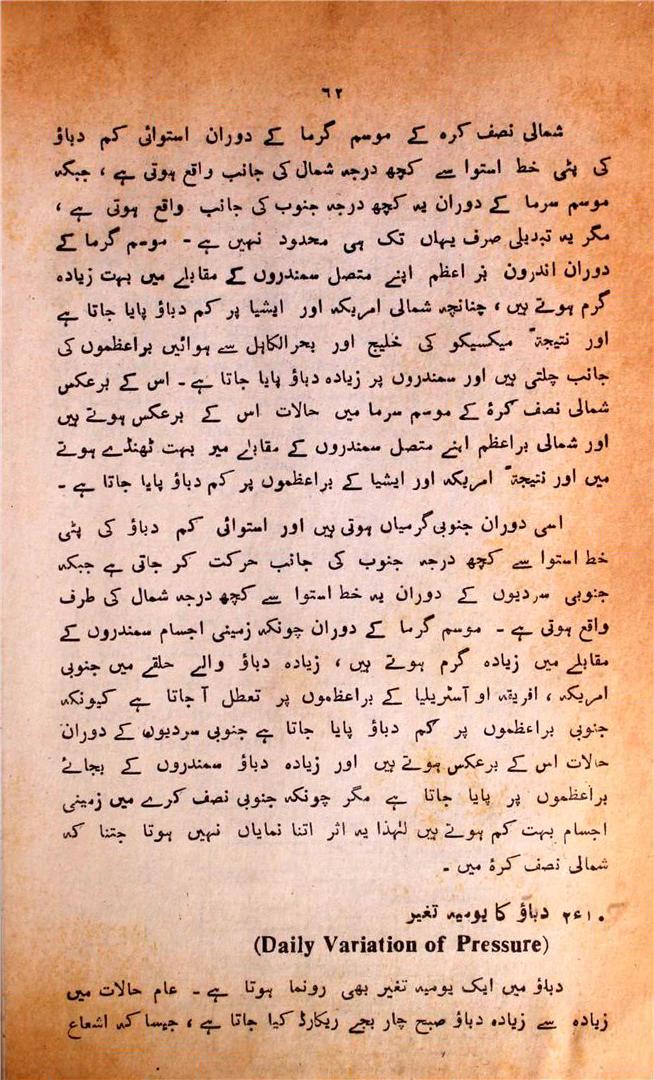 ٦٢
شمالی نصف کرہ کے موسم گرما کے دوران استوائی کم دباؤ
کی پٹی خط استوا سے کچھ درجہ شمال کی جانب واقع ہوتی ہے ، جبکہ
موسم سرما کے دوران یہ کچھ درجہ جنوب کی جانب واقع ہوتی ہے ،
مگر یہ تبدیلی صرف یہاں تک ہی محدود نہیں ہے - موسم گرما کے
دوران اندرون بر اعظم اپنے متصل سمندروں کے مقابلے میں بہت زیادہ
گرم ہوتے ہیں ، چنانچہ شمالی امریکہ اور ایشیا پر کم دباؤ پایا جاتا ہے
اور نتیجۃً میکسیکو کی خلیج اور بحرالکاہل سے ہوائیں براعظموں کی
جانب چلتی ہیں اور سمندروں پر زیادہ دباؤ پایا جاتا ہے - اس کے برعکس
شمالی نصف کرۂ کے موسم سرما میں حالات اس کے برعکس ہوتے ہیں
اور شمالی براعظم اپنے متصل سمندروں کے مقابلے میں بہت ٹھنڈے ہوتے
میں اور نتیجۃً امریکہ اور ایشیا کے براعظموں پر کم دباؤ پایا جاتا ہے -
اسی دوران جنوبی گرمیاں ہوتی ہیں اور استوائی کم دباؤ کی پٹی
خط استوا سے کچھ درجہ جنوب کی جانب حرکت کر جاتی ہے جبکہ
جنوبی سردیوں کے دوران یہ خط استوا سے کچھ درجہ شمال کی طرف
واقع ہوتی ہے - موسم گرما کے دوران چونکہ زمینی اجسام سمندروں کے
مقابلے میں زیادہ گرم ہوتے ہیں ، زیادہ دباؤ والے حلقے میں جنوبی
امریکہ ، افریقہ او آسٹریلیا کے براعظموں پر تعطل آ جاتا ہے کیونکہ
جنوبی براعظموں پر کم دباؤ پایا جاتا ہے جنوبی سردیوں کے دوران
حالات اس کے برعکس ہوتے ہیں اور زیادہ دباؤ سمندروں کے بجائے
براعظموں پر پایا جاتا ہے مگر چونکہ جنوبی نصف کرے میں زمینی
اجسام بہت کم ہوتے ہیں لہٰذا یہ اثر اتنا نمایاں نہیں ہوتا جتنا کہ
شمالی نصف کرۂ میں -
۲ء۱۰ دباؤ کا یومیہ تغیر
(Daily Variation of Pressure)
دباؤ میں ایک یومیہ تغیر بھی رونما ہوتا ہے - عام حالات میں
زیادہ سے زیادہ دباؤ صبح چار بجے ریکارڈ کیا جاتا ہے ، جیسا کہ اشعاع